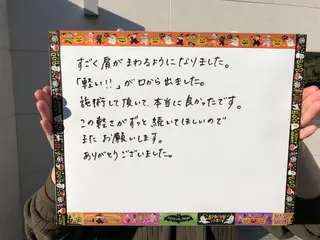 すごく肩がまわるようになりました。
「軽い!!」が口から出ました。
施術して頂いて、本当に良かったです。
この軽さがずっと続いてほしいので
またお願いします。
ありがとうございました。